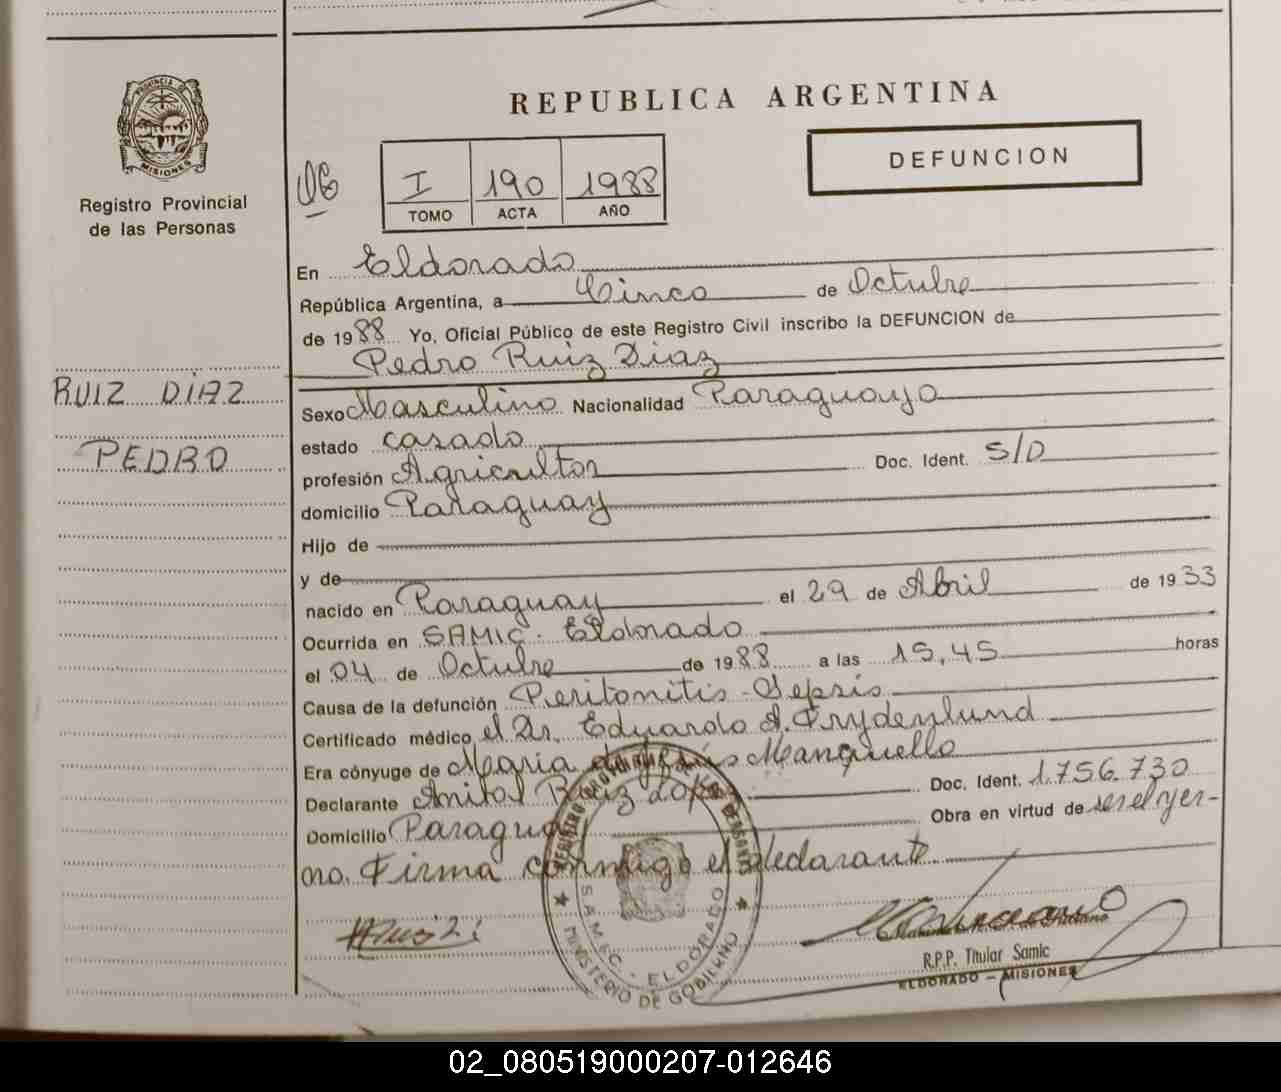 PROVINCIA DE
MISIONES
Registro Provincial
de las Personas
RUIZ DÍAZ
PEDRO
REPUBLICA ARGENTINA
DEFUNCION
I 190 1988
TOMO ACTA AÑO
En Eldorado
República Argentina, a Cinco de Octubre
de 1988 Yo, Oficial Público de este Registro Civil inscribo la DEFUNCION de
Pedro Ruiz Diaz
Sexo Masculino Nacionalidad Paraguaya
estado casado
profesión Agricultor Doc. Ident. S/D
domicilio Paraguay
Hijo de
y de
nacido en Paraguay el 29 de Abril de 1933
Ocurrida en SAMIC. Eldorado
el 04 de Octubre de 1988 a las 15,45 horas
Causa de la defunción Peritonitis - Sepsis
Certificado médico el Dr. Eduardo A. Frydenlund
Era cónyuge de Maria de Jesús Manquello
Declarante Anibal Ruiz Lopez Doc. Ident. 1.756.730
Domicilio Paraguay Obra en virtud de ser el yer-
no. Firma conmigo el declarante
S.A.M.I.C. - ELDORADO
MINISTERIO DE GOBIERNO
R.P.P. Titular Samic
ELDORADO - MISIONES
02_080519000207-012646